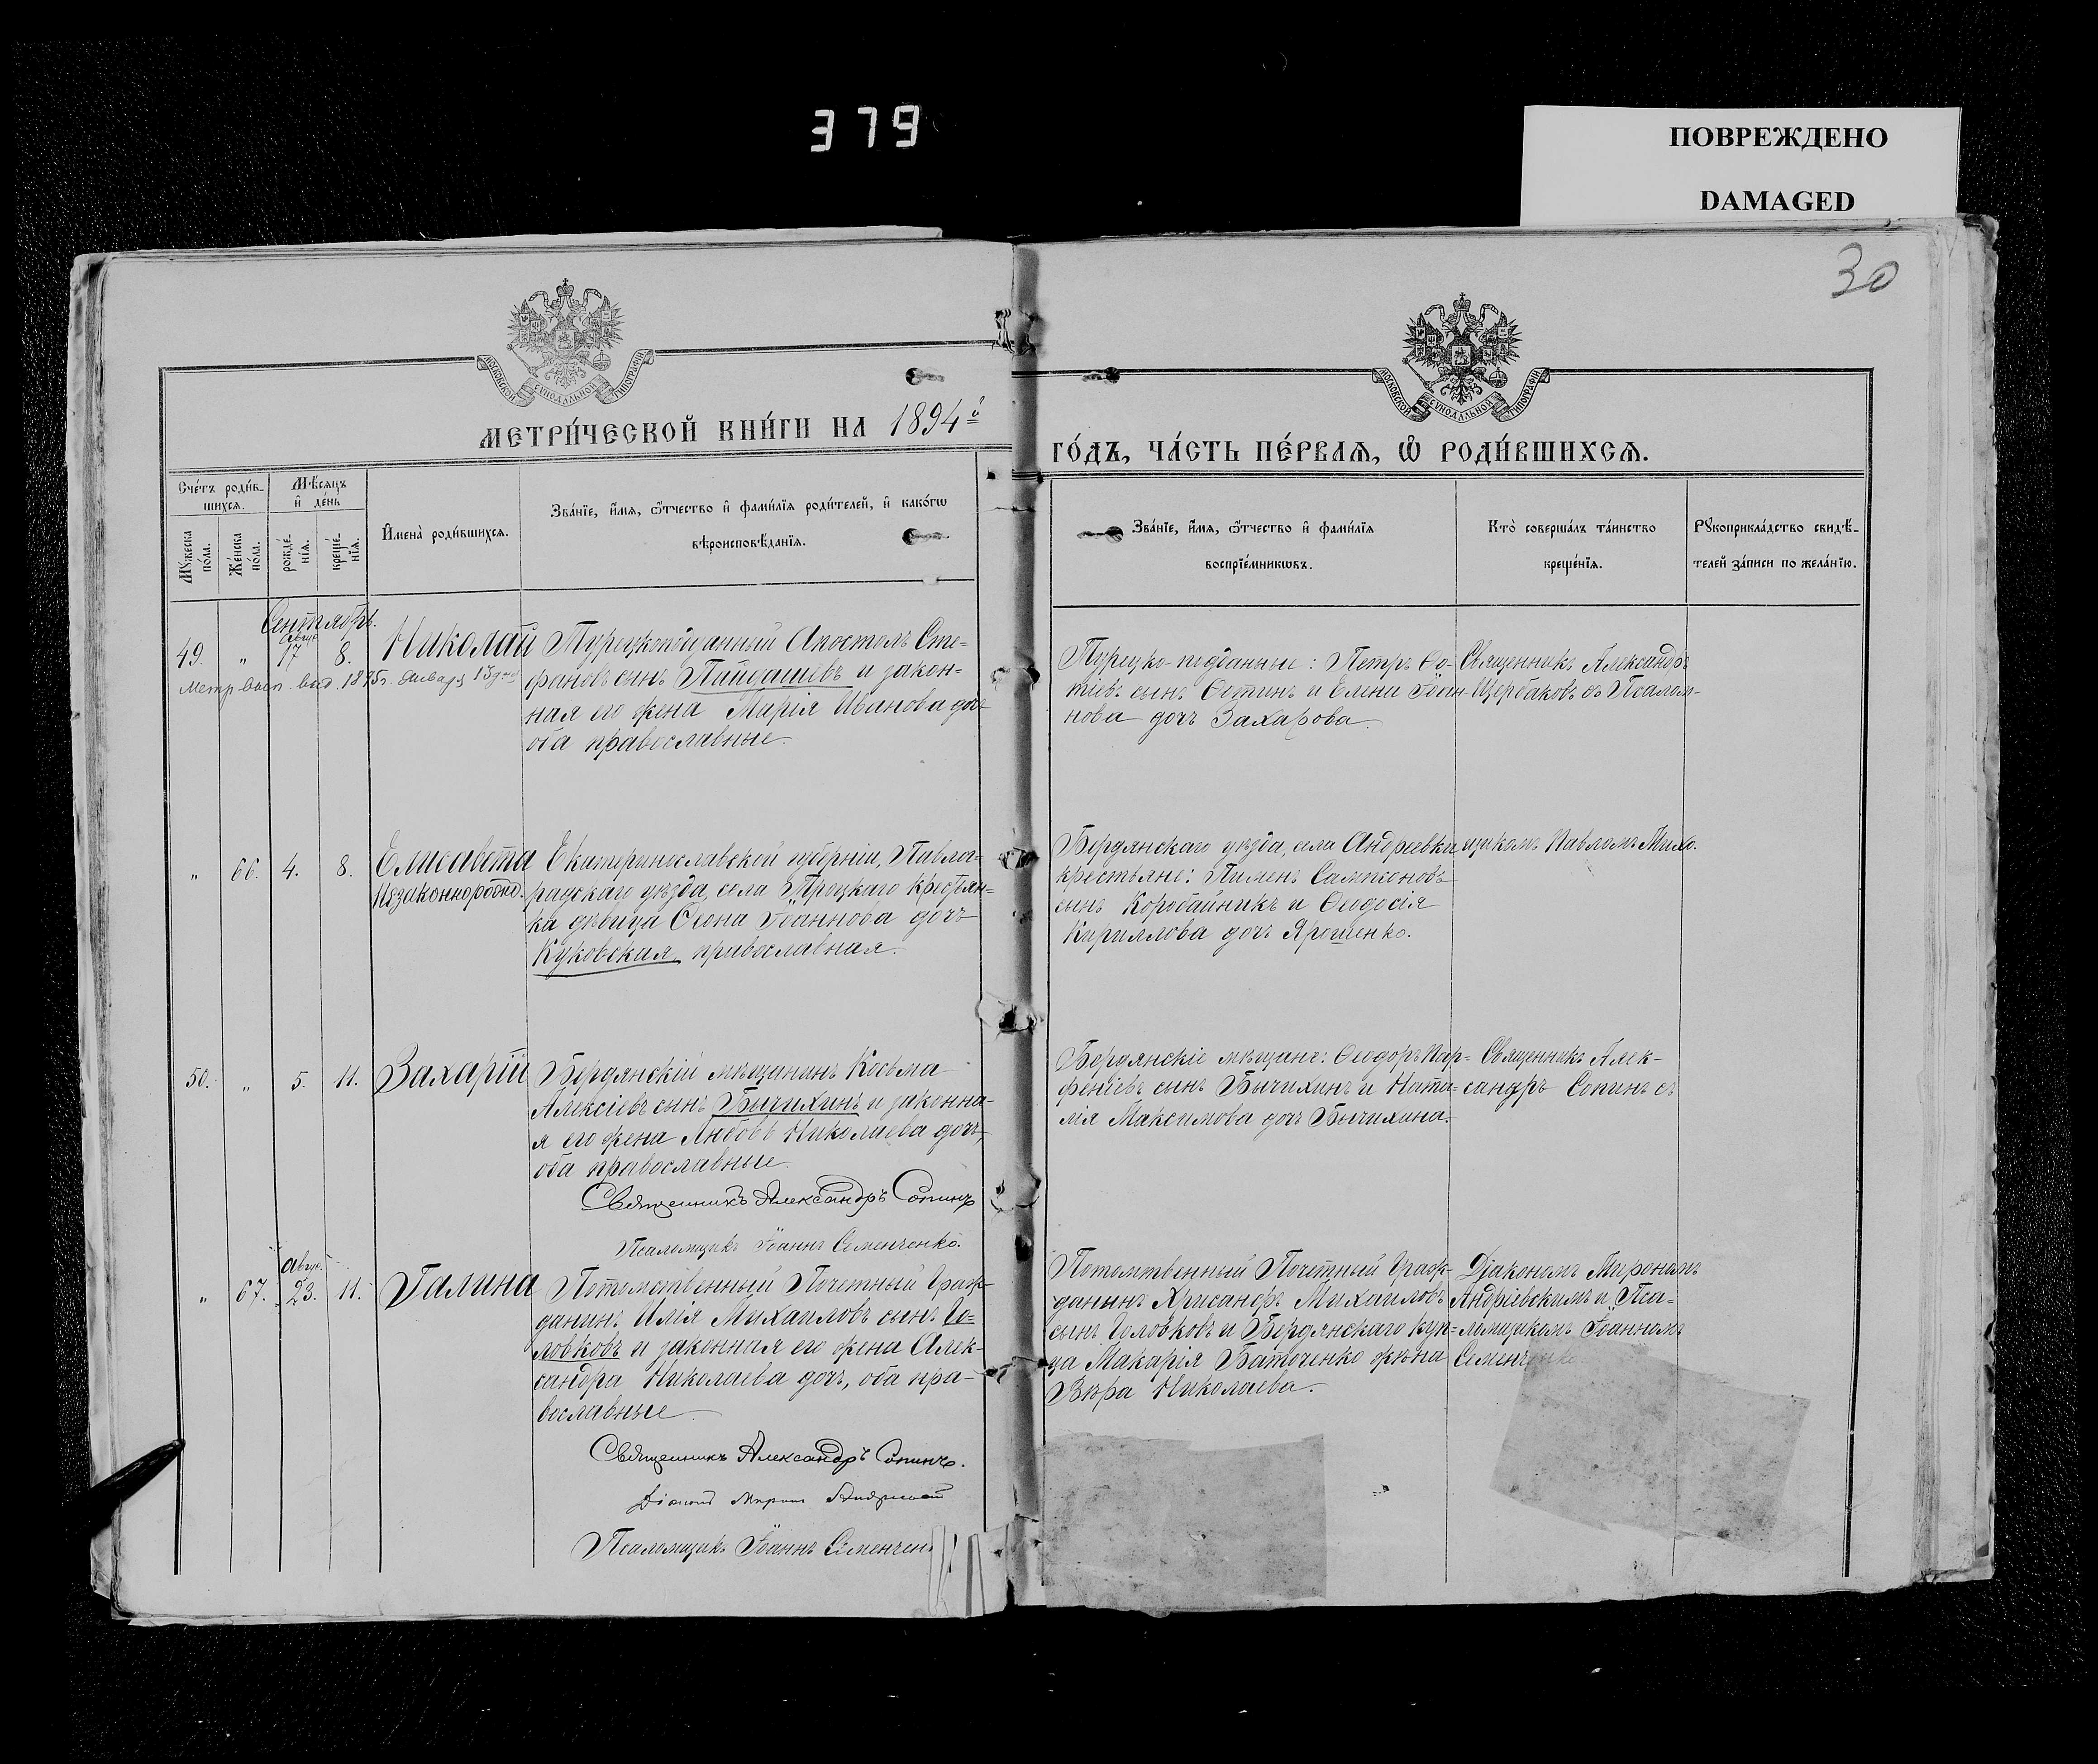 379
ПОВРЕЖДЕНО
DAMAGED
30
МОСКОВСКОЙ СѴНОДАЛЬНОЙ ТИПОГРАФІИ
МОСКОВСКОЙ СѴНОДАЛЬНОЙ ТИПОГРАФІИ
МЕТРИ́ЧЕСКОЙ КНИ́ГИ НА 1894й
ГО́ДЪ, ЧА́СТЬ ПЕ́РВАѦ, Ѡ҆ РОДИ́ВШИХСѦ.
Сче́тъ роди́в-
шихсѧ.
Мѣ́сѧцъ
и҆ де́нь
Мꙋ́жеска
по́ла.
Же́нска
по́ла.
рожде́-
нїѧ.
креще́-
нїѧ.
И҆мена̀ роди́вшихсѧ.
Зва́нїе, и҆́мѧ, ѻ҆́тчество и҆ фами́лїѧ роди́телей, и҆ како́гѡ
вѣроисповѣ́данїѧ.
Зва́нїе, и҆́мѧ, ѻ҆́тчество и҆ фами́лїѧ
воспрїе́мникѡвъ.
Кто̀ соверша́лъ та́инство
креще́нїѧ.
Рꙋкоприкла́дство свидѣ́-
телей за́писи по жела́нїю.
Сентябрь.
Авгус
49. " 17 8. Николай
Метр. вып. выд. 1895 г. Января 13 дня
Турецкоподданный Апостолъ Сте-
фановъ сынъ Пайдашевъ и закон-
ная его жена Марія Иванова дочь
оба православные.
Турецко-подданные: Петръ Фо-
тіевъ сынъ Фотинъ и Елена Іоан-
нова дочь Захарова.
Священникъ Александръ
Щербаковъ съ Псалом-
" 66. 4. 8. Елисавета
Незаконнорожд.
Екатеринославской губерніи, Павло-
градскаго уѣзда, села Троцкаго крестьян-
ка дѣвица Ѳеона Іоаннова дочь
Куковская, православная.
Бердянскаго уѣзда, села Андреевки
крестьяне: Пименъ Сампсоновъ
сынъ Коробайникъ и Ѳеодосія
Кириллова дочь Ярошенко.
щикомъ Павломъ Михо.
50. " 5. 11. Захарій
Бердянскій мѣщанинъ Косьма
Алексіевъ сынъ Бычихинъ и законна-
я его жена Любовь Николаева дочь,
оба православные.
Священникъ Александръ Сопинъ
Псаломщикъ Іоаннъ Семенченко.
Бердянскіе мѣщане: Ѳеодоръ Пар-
феніевъ сынъ Бычихинъ и Ната-
лія Максимова дочь Бычихина.
Священникъ Алек-
сандръ Сопинъ съ
Авгус.
" 67. 23. 11. Галина
Потомственный Почетный Граж-
данинъ Илія Михаиловъ сынъ Го-
ловковъ и законная его жена Алек-
сандра Николаева дочь, оба пра-
вославные
Священникъ Александръ Сопинъ.
Діаконъ Миронъ Андріевскій
Псаломщикъ Іоаннъ Семенчен
Потомственный Почетный Граж-
данинъ Хрисанфъ Михаиловъ
сынъ Головковъ и Бердянскаго куп-
ца Макарія Баточенко жена
Вѣра Николаева.
Діакономъ Мирономъ
Андріевскимъ и Пса-
ломщикомъ Іоанномъ
Семенченко